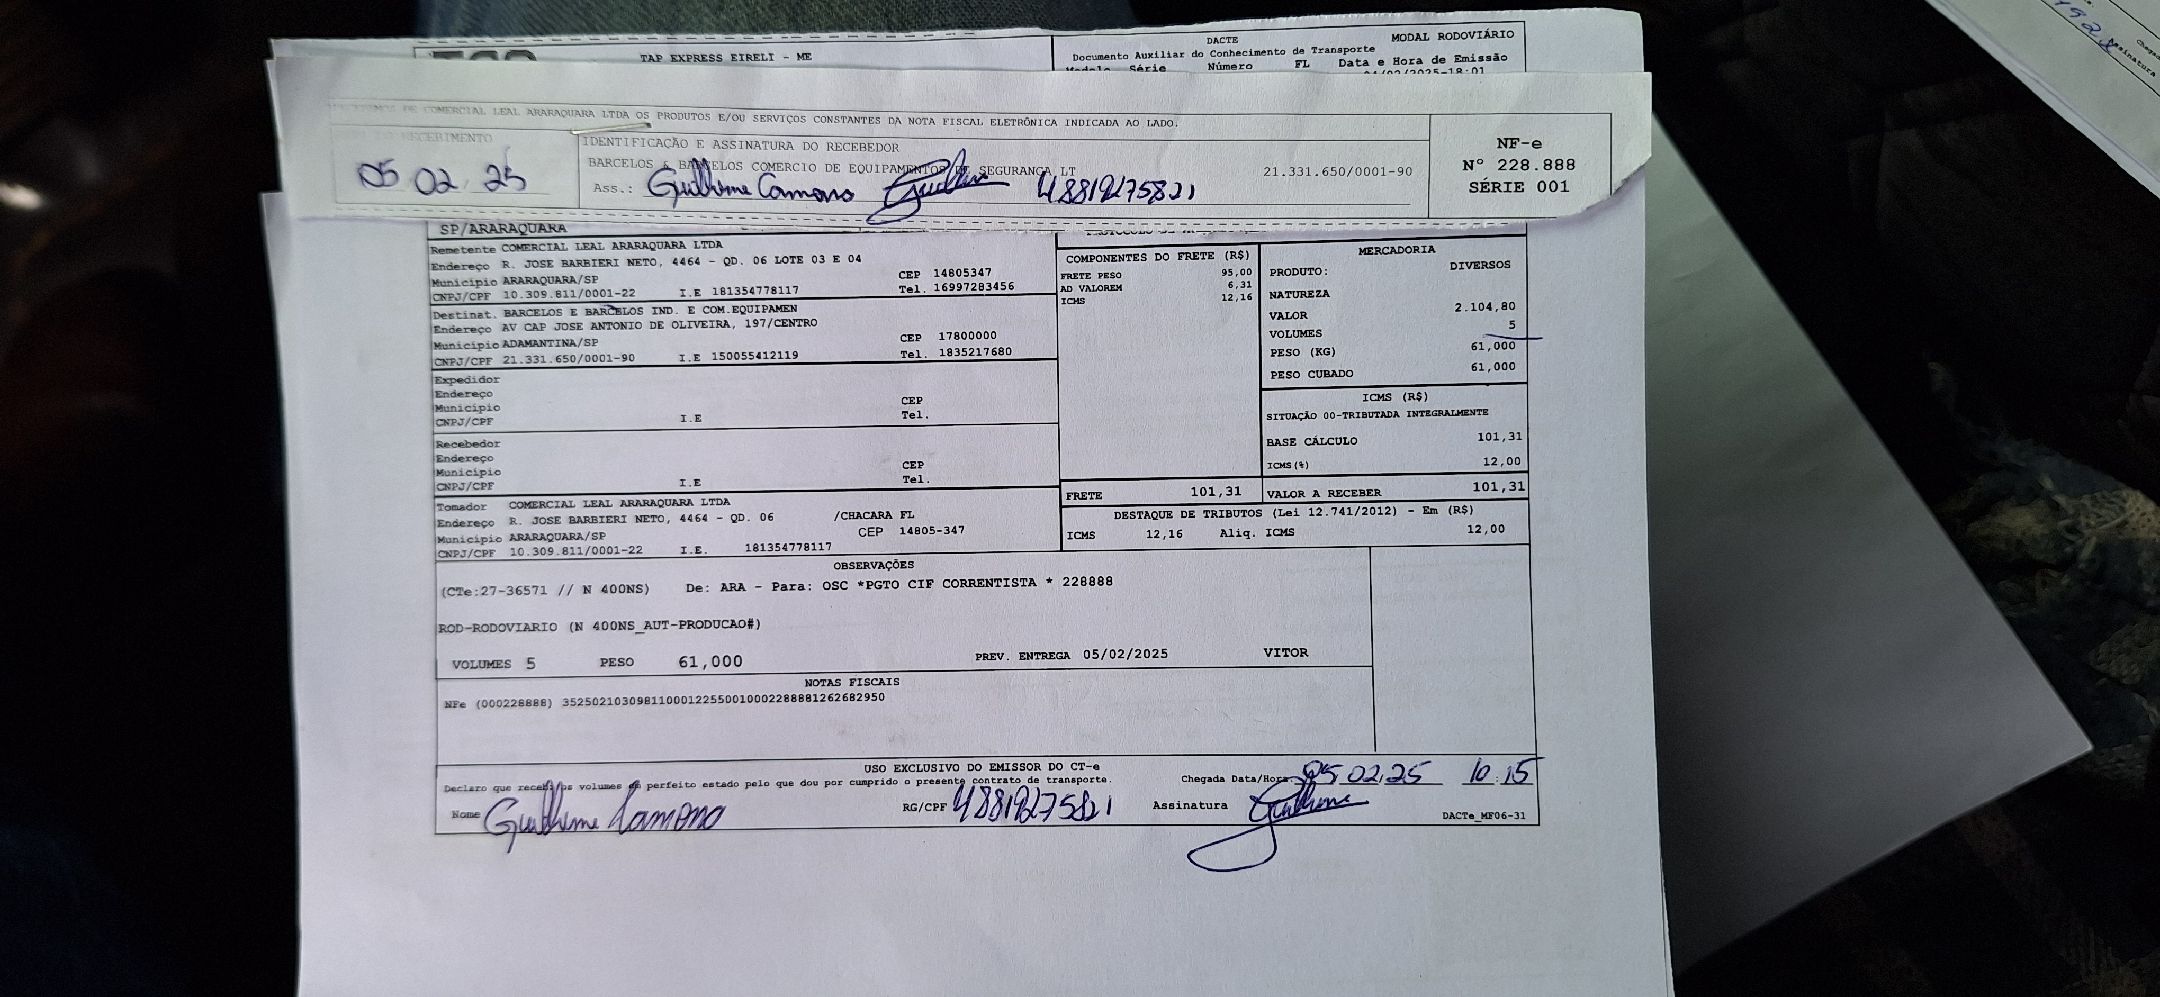 TAP EXPRESS EIRELI - ME
DACTE
MODAL RODOVIÁRIO
Documento Auxiliar do Conhecimento de Transporte
Modelo Série Número FL Data e Hora de Emissão
/2025-18:01
DE COMERCIAL LEAL ARARAQUARA LTDA OS PRODUTOS E/OU SERVIÇOS CONSTANTES DA NOTA FISCAL ELETRÔNICA INDICADA AO LADO.
RECEBIMENTO
05 02 25
IDENTIFICAÇÃO E ASSINATURA DO RECEBEDOR
BARCELOS & BARCELOS COMERCIO DE EQUIPAMENTOS DE SEGURANÇA LT 21.331.650/0001-90
Ass.: Guilherme 48819275821
NF-e
Nº 228.888
SÉRIE 001
SP/ARARAQUARA
Remetente COMERCIAL LEAL ARARAQUARA LTDA
Endereço R. JOSE BARBIERI NETO, 4464 - QD. 06 LOTE 03 E 04
Município ARARAQUARA/SP CEP 14805347
CNPJ/CPF 10.309.811/0001-22 I.E 181354778117 Tel. 16997283456
Destinat. BARCELOS E BARCELOS IND. E COM.EQUIPAMEN
Endereço AV CAP JOSE ANTONIO DE OLIVEIRA, 197/CENTRO
Município ADAMANTINA/SP CEP 17800000
CNPJ/CPF 21.331.650/0001-90 I.E 150055412119 Tel. 1835217680
Expedidor
Endereço
Município CEP
CNPJ/CPF I.E Tel.
Recebedor
Endereço
Município CEP
CNPJ/CPF I.E Tel.
Tomador COMERCIAL LEAL ARARAQUARA LTDA
Endereço R. JOSE BARBIERI NETO, 4464 - QD. 06 /CHACARA FL
Município ARARAQUARA/SP CEP 14805-347
CNPJ/CPF 10.309.811/0001-22 I.E. 181354778117
COMPONENTES DO FRETE (R$)
FRETE PESO 95,00
AD VALOREM 6,31
ICMS 12,16
FRETE 101,31
MERCADORIA
PRODUTO: DIVERSOS
NATUREZA
VALOR 2.104,80
VOLUMES 5
PESO (KG) 61,000
PESO CUBADO 61,000
ICMS (R$)
SITUAÇÃO 00-TRIBUTADA INTEGRALMENTE
BASE CÁLCULO 101,31
ICMS(%) 12,00
VALOR A RECEBER 101,31
DESTAQUE DE TRIBUTOS (Lei 12.741/2012) - Em (R$)
ICMS 12,16 Aliq. ICMS 12,00
OBSERVAÇÕES
(CTe:27-36571 // N 400NS) De: ARA - Para: OSC *PGTO CIF CORRENTISTA * 228888
ROD-RODOVIARIO (N 400NS_AUT-PRODUCAO#)
VOLUMES 5 PESO 61,000 PREV. ENTREGA 05/02/2025 VITOR
NOTAS FISCAIS
NFe (000228888) 35250210309811000122550010002288881262682950
USO EXCLUSIVO DO EMISSOR DO CT-e
Declaro que recebi os volumes em perfeito estado pelo que dou por cumprido o presente contrato de transporte.
Chegada Data/Hora 05 02 25 10:15
Nome Guilherme RG/CPF 48819275821 Assinatura Guilherme
DACTe_MF06-31